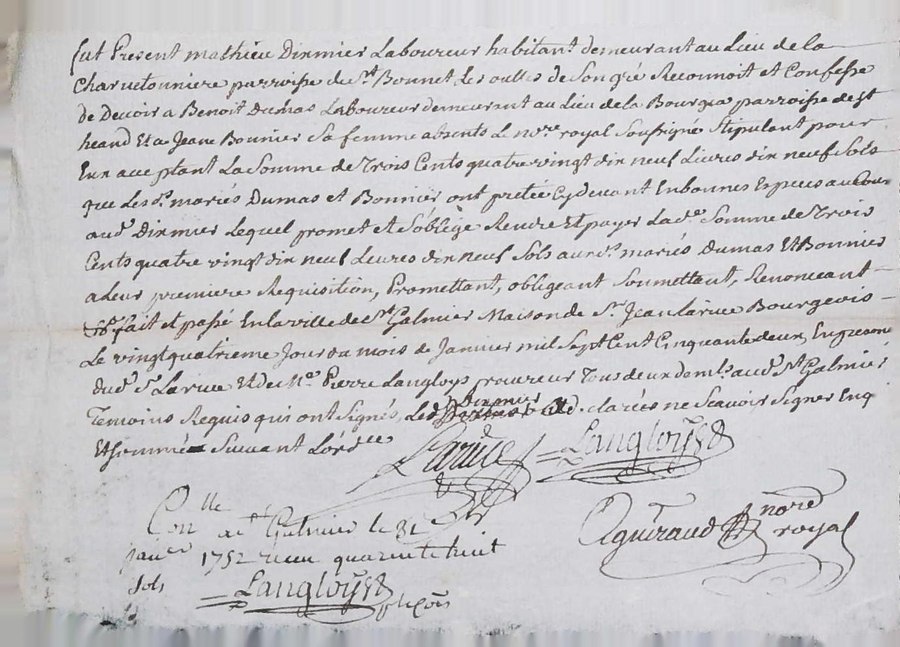 fut Present mathieu Dirmier Laboureur habitant demeurant au Lieu de la
Charnetonniere parroisse de St Bonnet Les oulles de Son gré Reconnoit et Confesse
de Devoir a Benoit Dumas Laboureur demeurant au Lieu de la Bourgia parroisse de St
heand Et a Jean Bonnier Sa femme absents Le nore royal Soussigné Stipulant pour
Eux acceptant La Somme de Trois Cents quatre vingt dix neuf Livres dix neuf Sols
que Les ds mariés Dumas et Bonnier ont pretée Cy devant En bonnes Especes au
aud Dirmier Lequel promet et S'oblige Rendre Et payer Lade Somme de Trois
Cents quatre vingt dix neuf Livres dix neuf Sols aux ds mariés Dumas Et Bonnier
a Leur premiere Requisition, Promettant, obligeant Soumettant, Renonceant
fait et passé En la ville de St Galmier Maison de Sr Jean Larue Bourgeois
Le vingt quatrieme Jour du mois de Janvier mil Sept Cent Cinquante deux, En presence
dud Sr Larue Et de Me Pierre Langloys procureur Tous deux demts aud St Galmier
Temoins Requis qui ont Signés, Led Dirmier a declarés ne Scavoir Signer Enq
Et sommé Suivant L'ordce
Larüe Langloys
Conlle a St Galmier le 31
janver 1752 receu quarente huit
sols
Langloys
Agniraud nore
royal